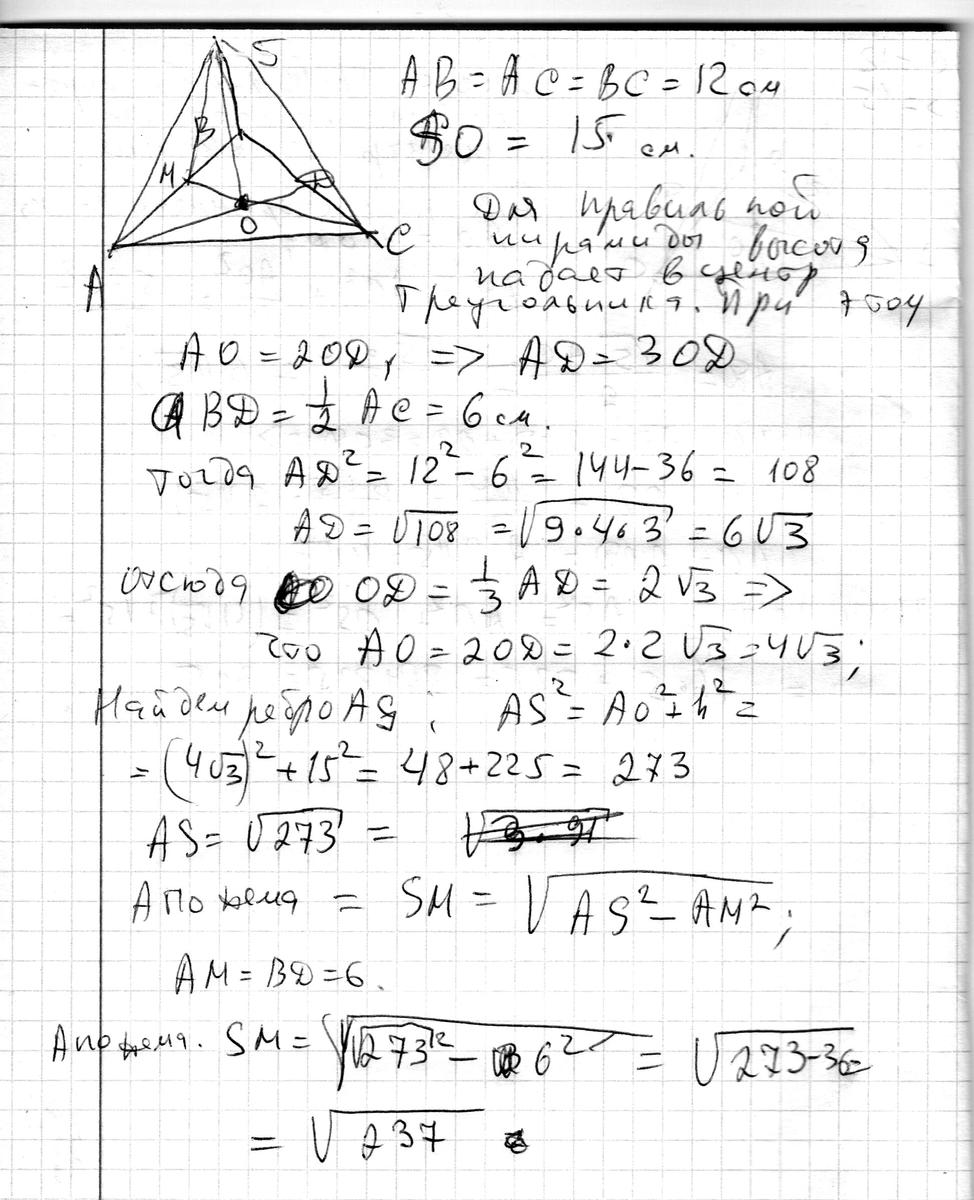 S
B
M
D
O
C
A
AB = AC = BC = 12 см
SO = 15 см.
Для правильной
пирамиды высота
падает в центр
треугольника. При этом
AO = 2OD, => AD = 3OD
BD = 1/2 AC = 6 см.
тогда AD² = 12² - 6² = 144 - 36 = 108
AD = √108 = √9·4·3 = 6√3
отсюда OD = 1/3 AD = 2√3 =>
что AO = 2OD = 2·2√3 = 4√3;
Найдем ребро AS; AS² = AO² + h² =
= (4√3)² + 15² = 48 + 225 = 273
AS = √273 =
Апофема = SM = √AS² - AM²;
AM = BD = 6.
Апофема. SM = √√273² - 6² = √273-36 =
= √237